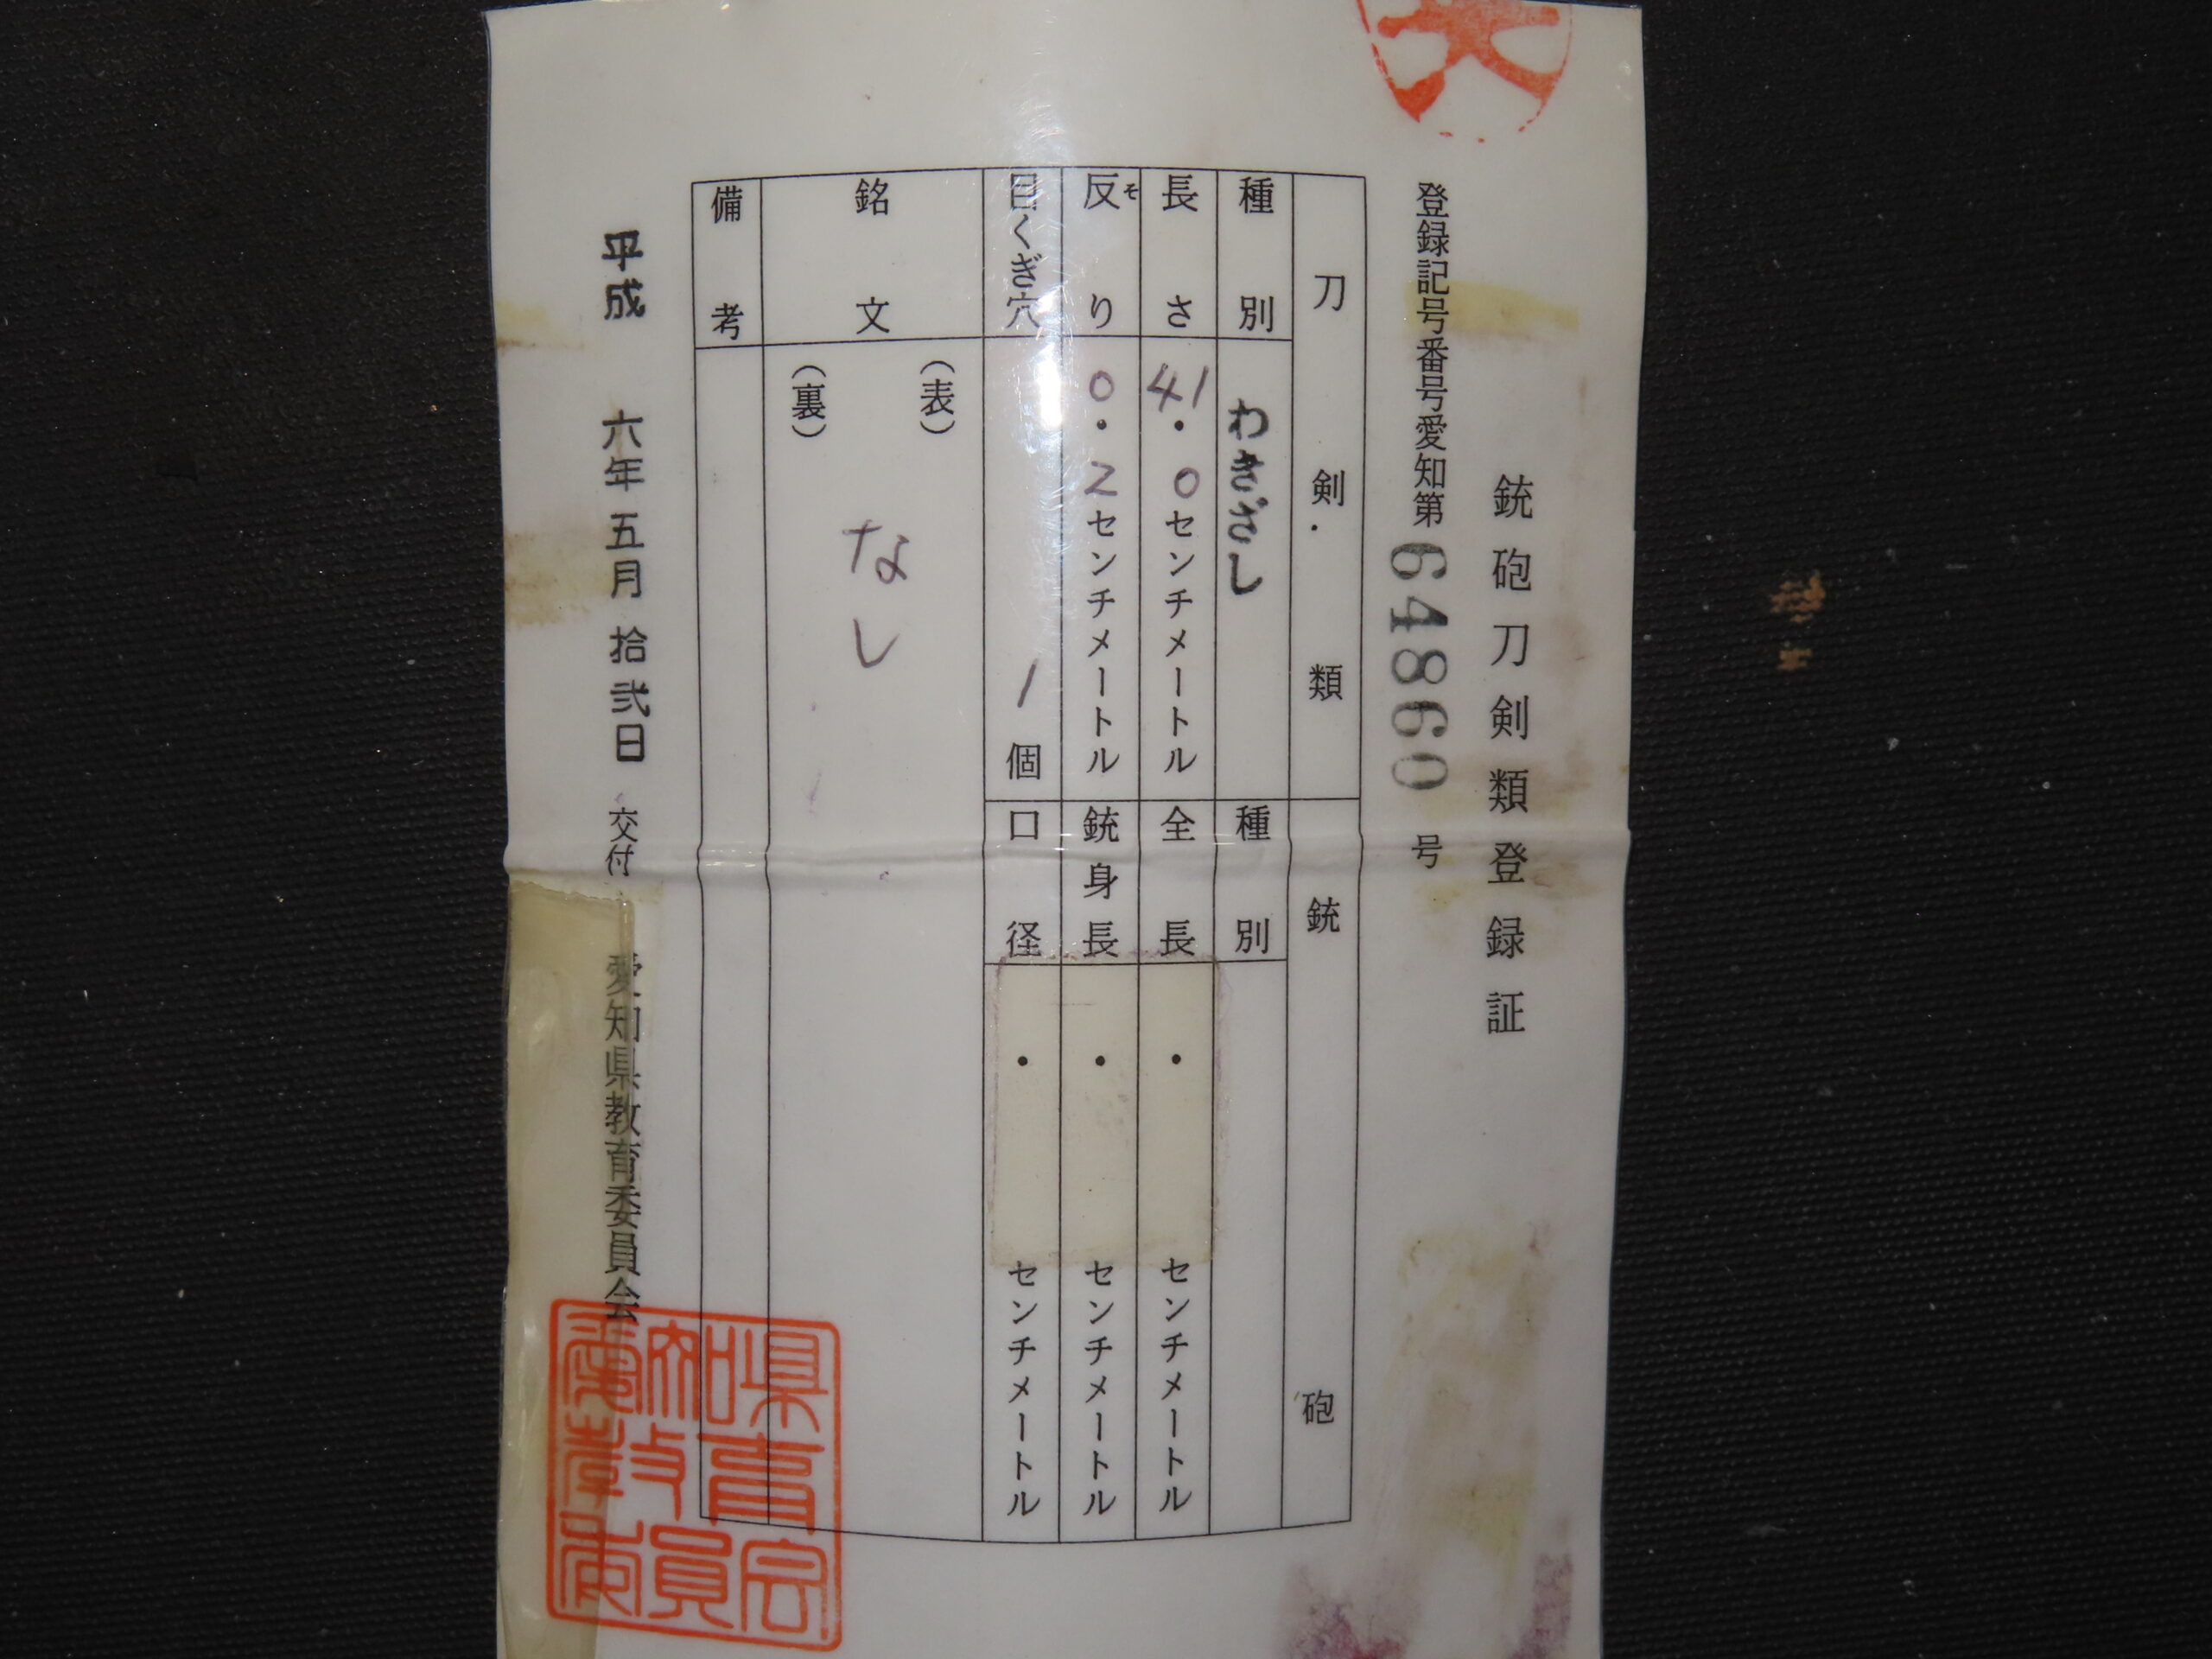 銃砲刀剣類登録証
登録記号番号愛知第64860号
刀剣類
種別 わきざし
長さ 41.0センチメートル
反り 0.2センチメートル
そ
目くぎ穴 1個
銘文
(表)
なし
(裏)
備考
銃砲
種別
全長 ・ センチメートル
銃身長 ・ センチメートル
口径 ・ センチメートル
平成 六年 五月 拾弐日 交付
愛知県教育委員会
愛知県教育委員会